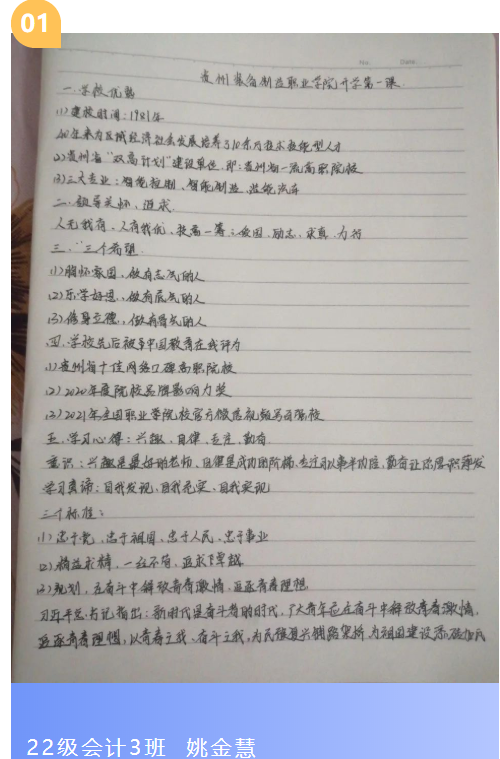 01
No. Date.
贵州装备制造职业学院开学第一课
一.学校优势
(1)建校时间:1981年
40年来为区域经济社会发展培养了10余万技术技能型人才
(2)贵州省“双高计划”建设单位.即:贵州省一流高职院校
(3)三大专业:智能控制、智能制造、新能汽车
二.领导关怀、追求.
人无我有、人有我优、技高一筹;爱国、励志、求真、力行
三.“三个希望
(1)胸怀家国、做有志气的人
(2)乐学好思、做有底气的人
(3)修身立德、做有骨气的人
四.学校先后被中国教育在线评为
(1)贵州省十佳网络口碑高职院校
(2)2020年度院校品牌影响力奖
(3)2021年全国职业学院校官方微信视频号百强校
五.学习心得:兴趣、自律、专注、勤奋
意识:兴趣是最好的老师、自律是成功的阶梯、专注可以事半功倍、勤奋让你厚积薄发
学习真谛:自我发现、自我充实、自我实现
三个标准:
(1)忠于党、忠于祖国、忠于人民、忠于事业
(2)精益求精、一丝不苟、追求卓越
(3)规划,在奋斗中释放青春激情、追逐青春理想
习近平总书记指出:新时代是奋斗者的时代,广大青年应在奋斗中释放青春激情、
追逐青春理想,以青春之我、奋斗之我,为民族复兴铺路架桥,为祖国建设添砖加瓦
22级会计3班 姚金慧